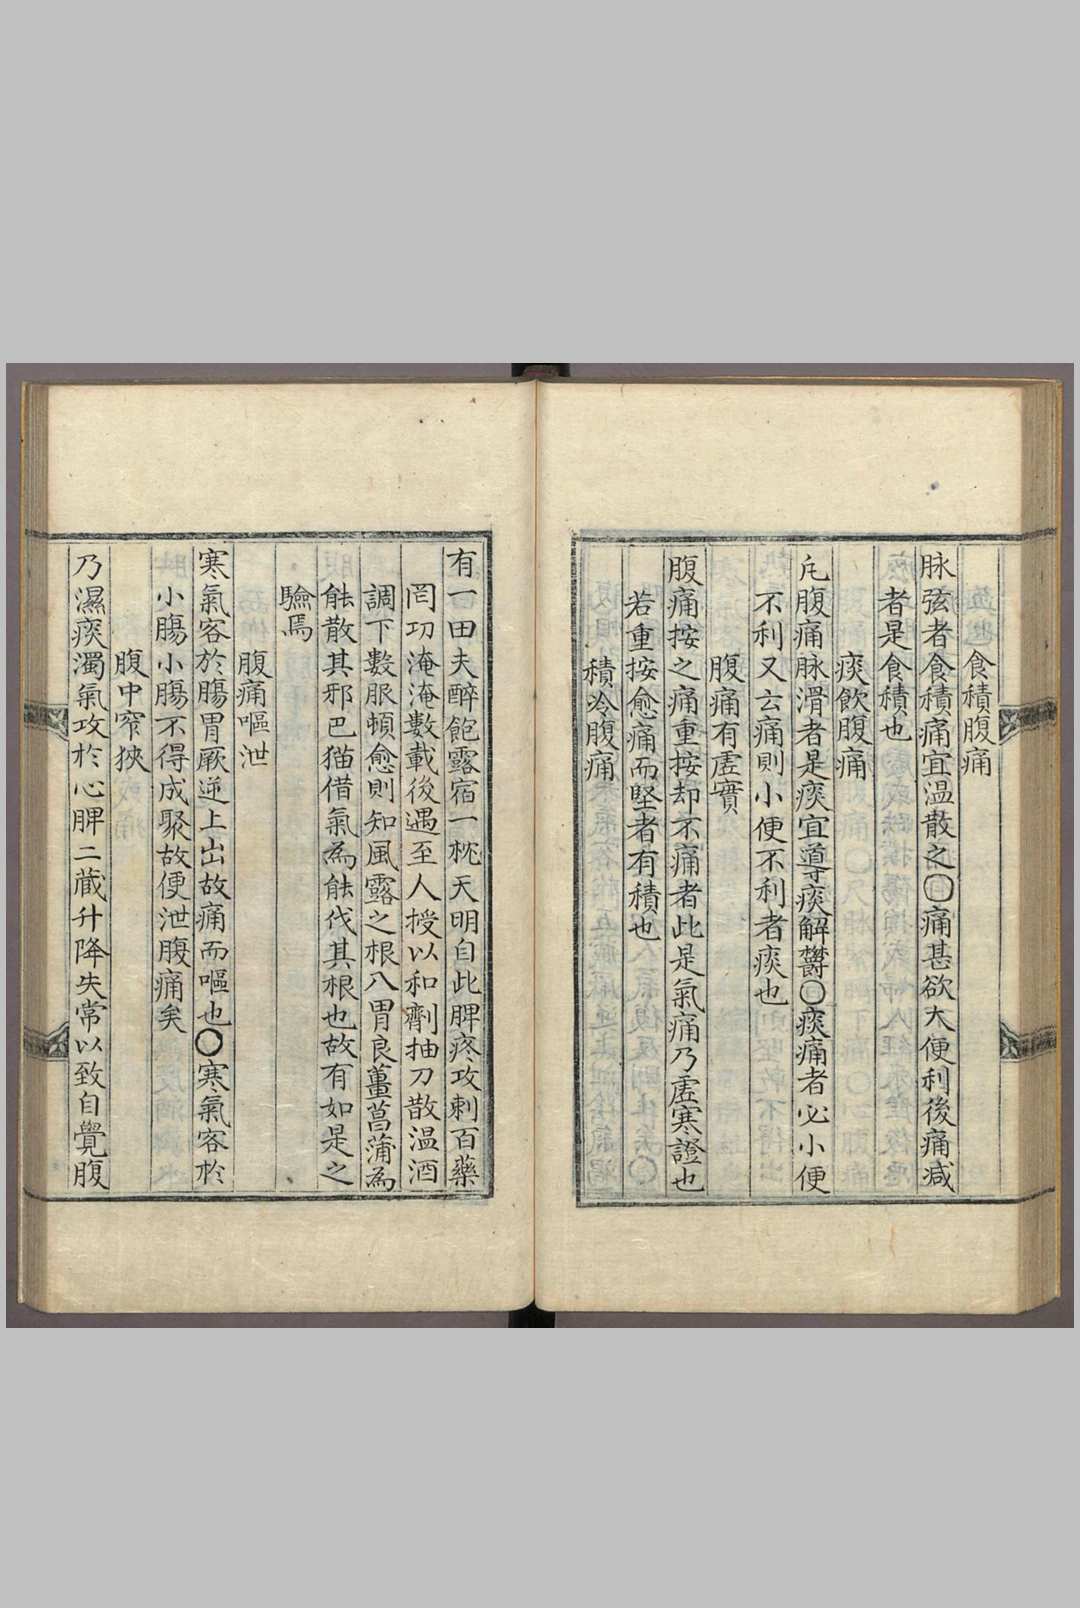 食積腹痛
脉弦者食積痛宜温散之〇痛甚欲大便利後痛减
者是食積也
痰飲腹痛
凡腹痛脉滑者是痰宜導痰解欝〇痰痛者必小便
不利又云痛則小便不利者痰也
腹痛有虛實
腹痛按之痛重按却不痛者此是氣痛乃虛寒證也
若重按愈痛而堅者有積也
積冷腹痛
有一田夫醉飽露宿一枕天明自此脾疼攻刺百藥
罔功淹淹數載後遇至人授以和劑抽刀散温酒
調下數服頓愈則知風露之根入胃良薑菖蒲為
能散其邪巴猫借氣為能伐其根也故有如是之
驗焉
腹痛嘔泄
寒氣客於膓胃厥逆上出故痛而嘔也〇寒氣客於
小膓小膓不得成聚故便泄腹痛矣
腹中窄狹
乃濕痰濁氣攻於心脾二藏升降失常以致自覺腹